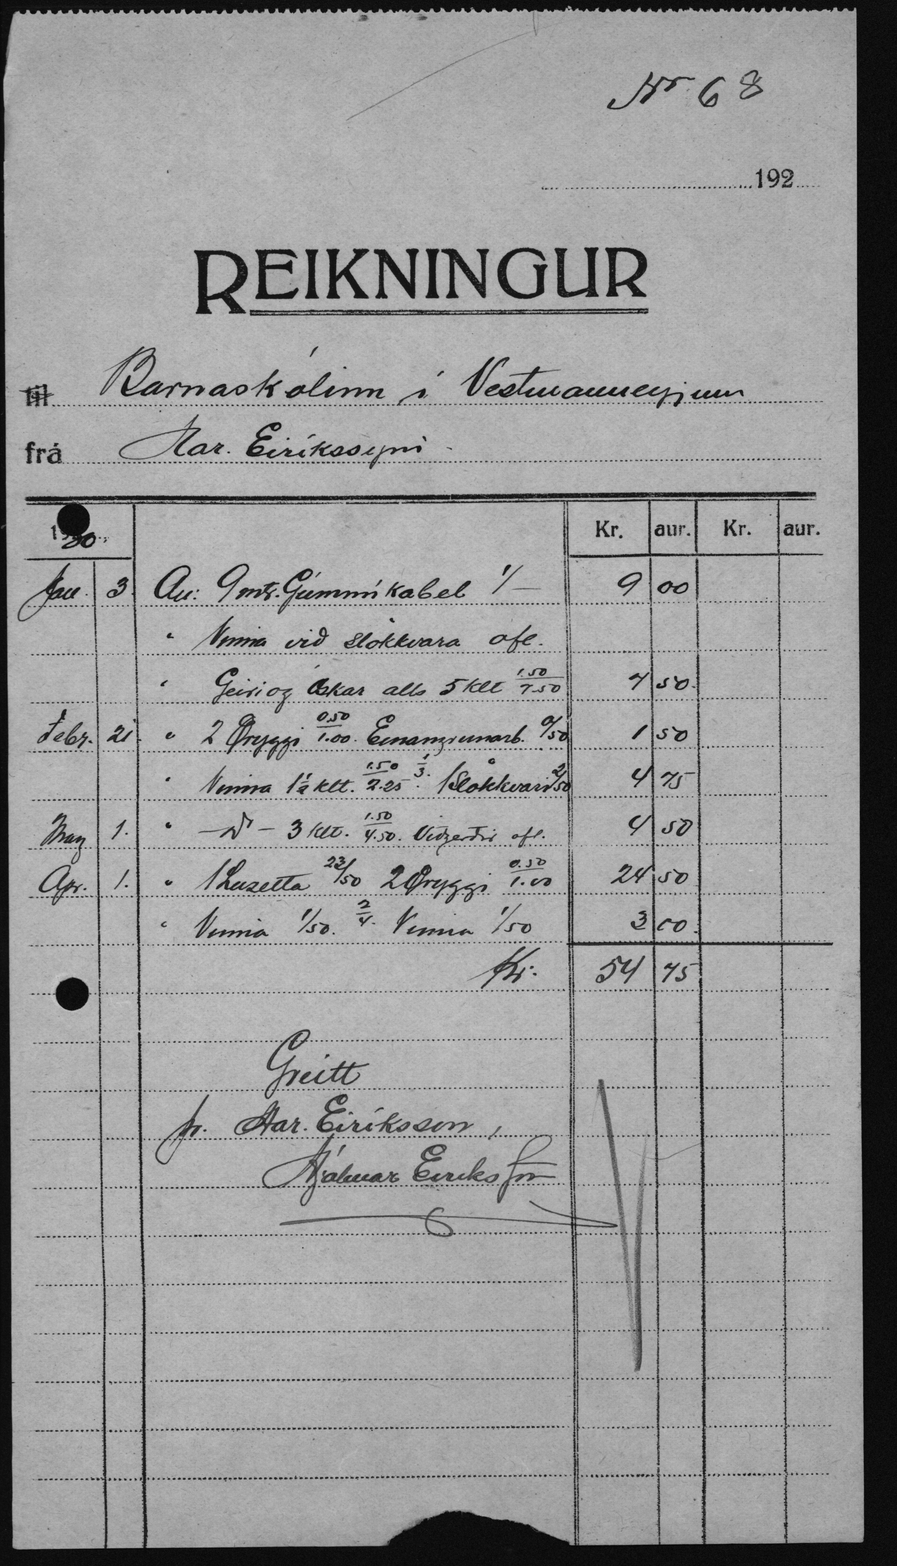 Nr 68
192
REIKNINGUR
til Barnaskólinn í Vestmannneyjum
frá Har. Eiríkssyni
30 Kr. aur. Kr. aur.
Jan. 3 Au: 9 mtr. Gúmmíkabel 1/— 9 00
" Vinna við slökkvara ofl.
" Geiri og Óskar alls 5 klt 1.50/7.50 7 50
Febr. 21 " 2 Öryggi 0.50/1.00 0/50 1 50
" Vinna 1½ klt. 1.50/2.25 1/3. 1 Slökkvari 2/50 4 75
1. " —"— 3 klt. 1.50/4.50. Viðgerðir ofl. 4 50
Apr. 1. " 1 Luzetta 23/50 2 Öryggi 0.50/1.00 24 50
" Vinna 1/50. 2/4. Vinna 1/50 3 00
Kr. 54 75
Greitt
pr. Har. Eiríksson,
Hjálmar Eiríksson